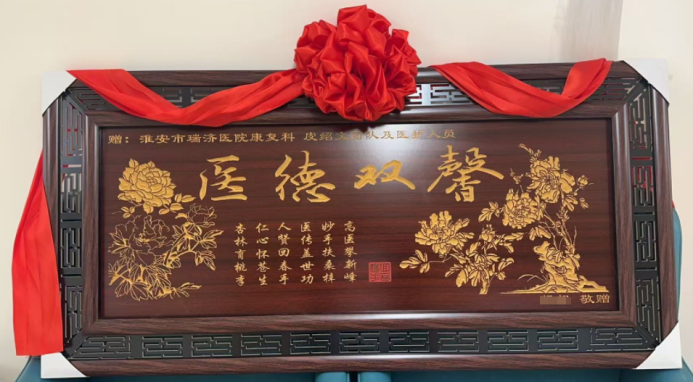 赠：淮安市瑞济医院康复科 队及医护人员
医德双馨
高医攀新峰
妙手扶桑梓
医传盖世功
人赞回春手
仁心怀苍生
杏林育桃李
敬赠